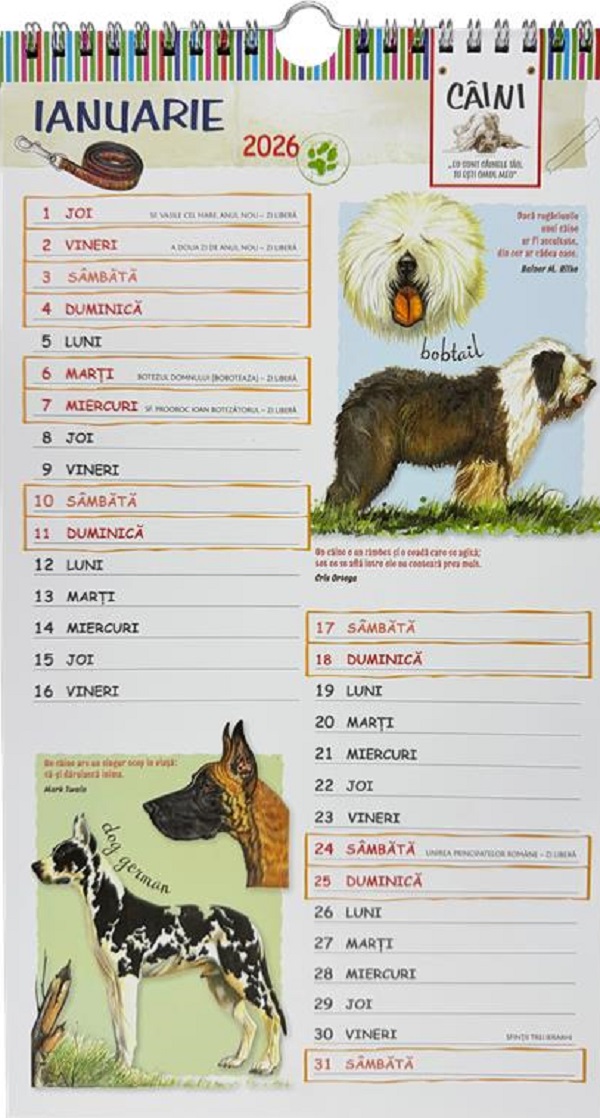 IANUARIE
2026
CÂINI
„EU SUNT CÂINELE TĂU,
TU EȘTI OMUL MEU”
1 JOI SF. VASILE CEL MARE, ANUL NOU – ZI LIBERĂ
2 VINERI A DOUA ZI DE ANUL NOU – ZI LIBERĂ
3 SÂMBĂTĂ
4 DUMINICĂ
5 LUNI
6 MARȚI BOTEZUL DOMNULUI (BOBOTEAZA) – ZI LIBERĂ
7 MIERCURI SF. PROOROC IOAN BOTEZĂTORUL – ZI LIBERĂ
8 JOI
9 VINERI
10 SÂMBĂTĂ
11 DUMINICĂ
12 LUNI
13 MARȚI
14 MIERCURI
15 JOI
16 VINERI
Dacă rugăciunile
unui câine
ar fi ascultate,
din cer ar cădea oase.
Rainer M. Rilke
bobtail
Un câine e un zâmbet și o coadă care se agită;
tot ce se află între ele nu contează prea mult.
Cris Ortega
17 SÂMBĂTĂ
18 DUMINICĂ
19 LUNI
20 MARȚI
21 MIERCURI
22 JOI
23 VINERI
24 SÂMBĂTĂ UNIREA PRINCIPATELOR ROMÂNE – ZI LIBERĂ
25 DUMINICĂ
26 LUNI
27 MARȚI
28 MIERCURI
29 JOI
30 VINERI SFINȚII TREI IERARHI
31 SÂMBĂTĂ
Un câine are un singur scop în viață:
să-și dăruiască inima.
Mark Twain
dog german